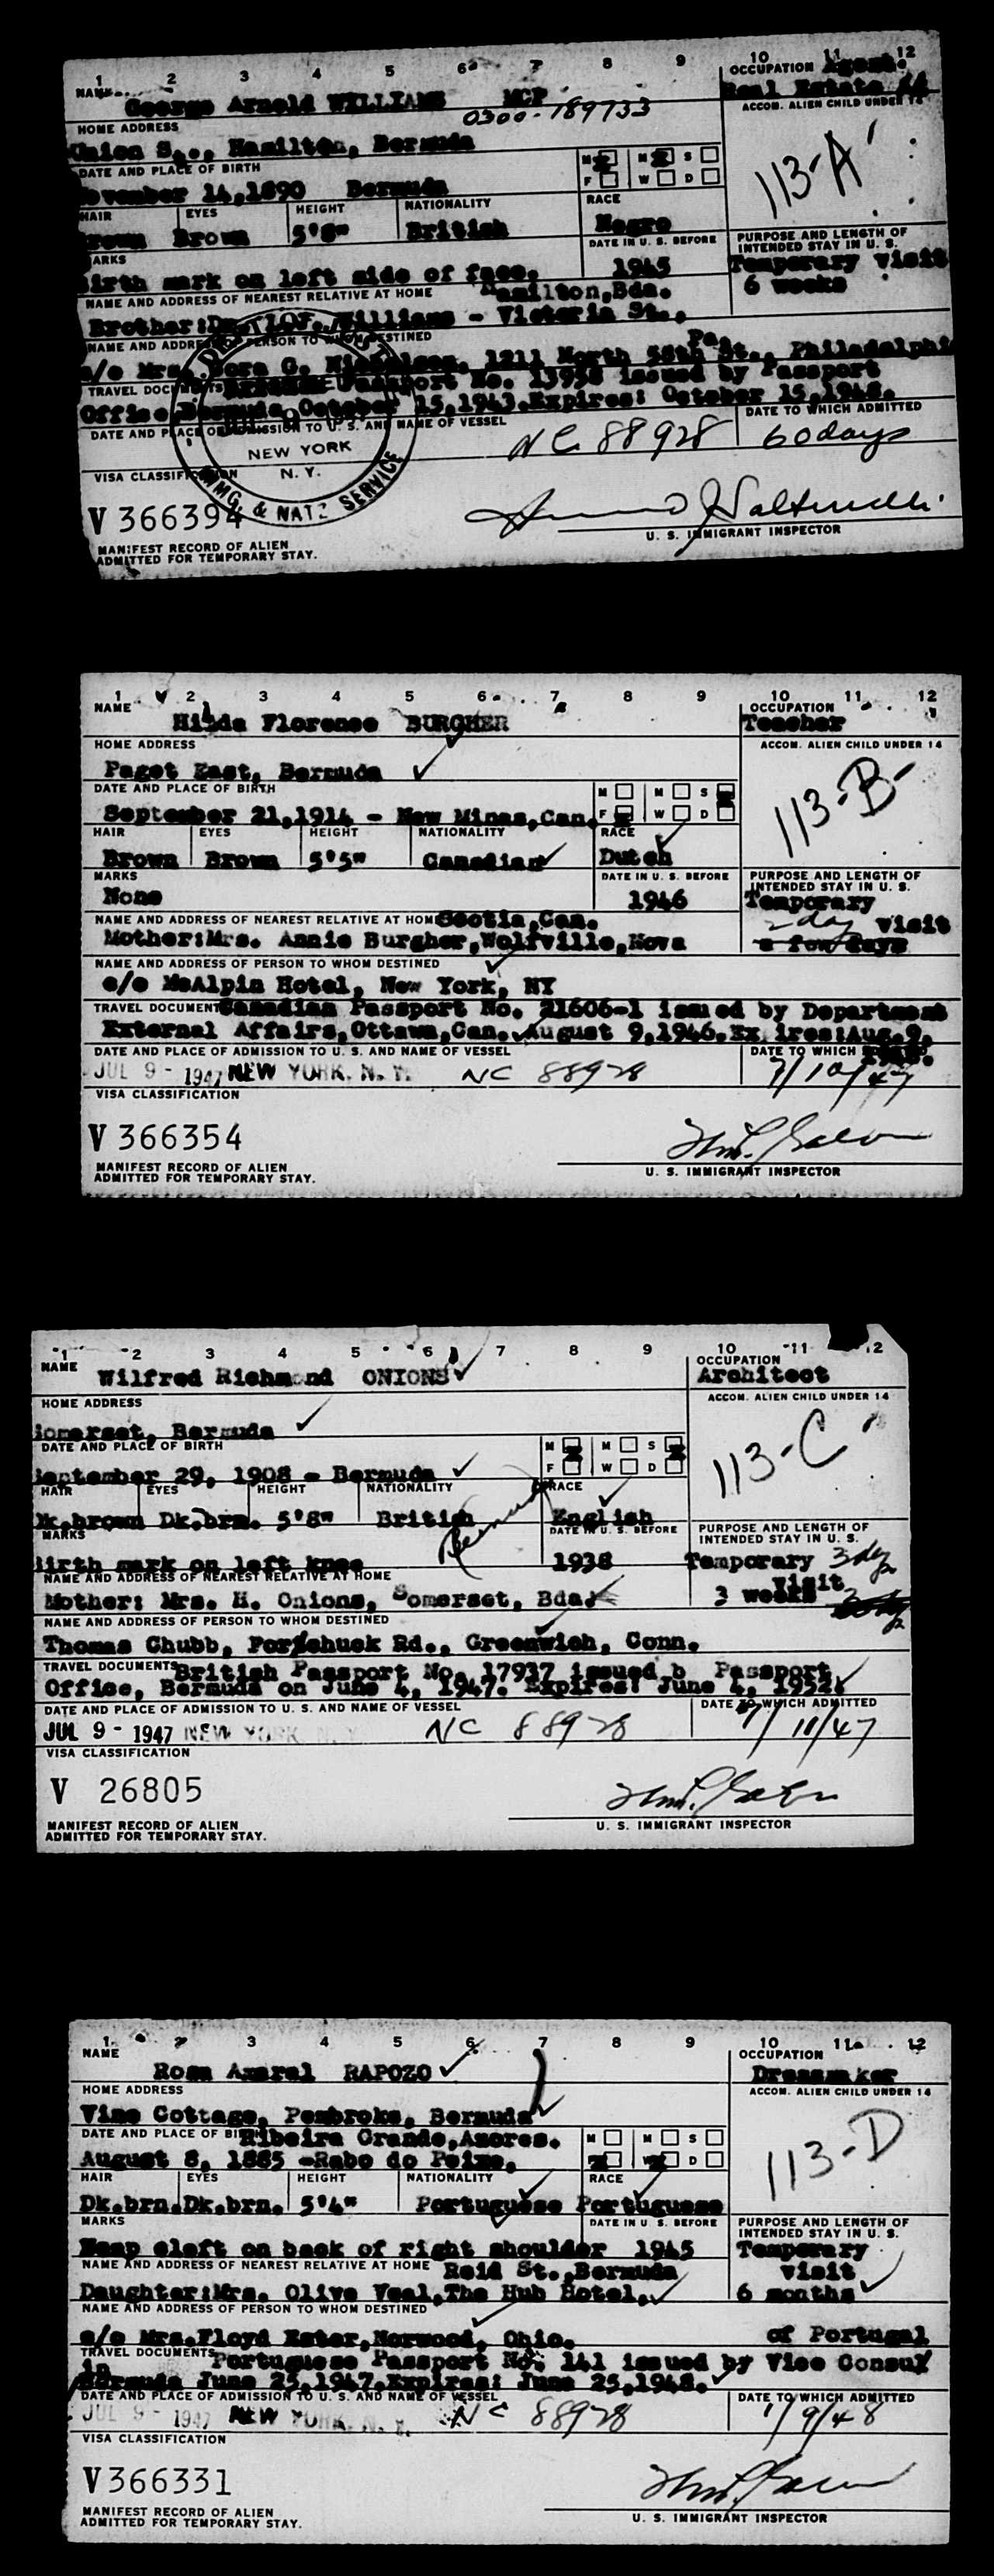 1 2 3 4 5 6 7 8 9 10 11 12
NAME OCCUPATION Agent.
George Arnold WILLIAMS MCP Real Estate
0300-189733
HOME ADDRESS ACCOM. ALIEN CHILD UNDER 14
Union S., Hamilton, Bermuda
113-A
DATE AND PLACE OF BIRTH M M S
November 14,1890 Bermuda F W D
HAIR EYES HEIGHT NATIONALITY RACE
Brown Brown 5'8" British Negro
DATE IN U. S. BEFORE PURPOSE AND LENGTH OF INTENDED STAY IN U. S.
MARKS 1945 Temporary visit
Birth mark on left side of face. 6 weeks
NAME AND ADDRESS OF NEAREST RELATIVE AT HOME Hamilton,Bda.
Brother: Williams - Victoria St.,
NAME AND ADDRESS OF PERSON TO WHOM DESTINED Pa.
c/o Mrs. Dora G. Nicholson, 1211 North 58th St., Philadelphia
TRAVEL DOCUMENTS British Passport No. 13958 issued by Passport
Office Bermuda October 15,1943.Expires: October 15,1948.
DATE AND PLACE OF ADMISSION TO U. S. AND NAME OF VESSEL DATE TO WHICH ADMITTED
NC 88928 60 days
NEW YORK
N. Y.
IMMG. & NATZ SERVICE
VISA CLASSIFICATION
V 366394
U. S. IMMIGRANT INSPECTOR
MANIFEST RECORD OF ALIEN
ADMITTED FOR TEMPORARY STAY.
1 2 3 4 5 6 7 8 9 10 11 12
NAME OCCUPATION
Hilda Florence BURGHER Teacher
HOME ADDRESS ACCOM. ALIEN CHILD UNDER 14
Paget East, Bermuda
113-B
DATE AND PLACE OF BIRTH M M S
September 21,1914 - New Minas,Can. F W D
HAIR EYES HEIGHT NATIONALITY RACE
Brown Brown 5'5" Canadian Dutch
MARKS DATE IN U. S. BEFORE PURPOSE AND LENGTH OF INTENDED STAY IN U. S.
None 1946 Temporary
NAME AND ADDRESS OF NEAREST RELATIVE AT HOME Scotia,Can. 2 day visit
Mother:Mrs. Annie Burgher,Wolfville,Nova a few days
NAME AND ADDRESS OF PERSON TO WHOM DESTINED
c/o McAlpin Hotel, New York, NY
TRAVEL DOCUMENTS Canadian Passport No. 21606-1 issued by Department
External Affairs,Ottawa,Can. August 9,1946.Ex ires:Aug.9,
DATE AND PLACE OF ADMISSION TO U. S. AND NAME OF VESSEL DATE TO WHICH
JUL 9 - 1947 NEW YORK, N. Y. NC 88928 7/10/47
VISA CLASSIFICATION
V 366354
MANIFEST RECORD OF ALIEN
ADMITTED FOR TEMPORARY STAY.
U. S. IMMIGRANT INSPECTOR
1 2 3 4 5 6 7 8 9 10 11 12
NAME OCCUPATION
Wilfred Richmond ONIONS Architect
HOME ADDRESS ACCOM. ALIEN CHILD UNDER 14
Somerset, Bermuda
113-C
DATE AND PLACE OF BIRTH M M S
September 29, 1908 - Bermuda F W D
HAIR EYES HEIGHT NATIONALITY RACE
Dk.brown Dk.brn. 5'8" British English
Bermuda
MARKS DATE IN U. S. BEFORE PURPOSE AND LENGTH OF INTENDED STAY IN U. S.
Birth mark on left knee 1938 Temporary 3 day
NAME AND ADDRESS OF NEAREST RELATIVE AT HOME visit
Mother: Mrs. H. Onions, Somerset, Bda. 3 weeks
NAME AND ADDRESS OF PERSON TO WHOM DESTINED
Thomas Chubb, Porchuck Rd., Greenwich, Conn.
TRAVEL DOCUMENTS British Passport No. 17937 issued b Passport
Office, Bermuda on June 4, 1947. Expires: June 4, 1952.
DATE AND PLACE OF ADMISSION TO U. S. AND NAME OF VESSEL DATE TO WHICH ADMITTED
JUL 9 - 1947 NEW YORK NC 88928 7/11/47
VISA CLASSIFICATION
V 26805
MANIFEST RECORD OF ALIEN
ADMITTED FOR TEMPORARY STAY.
U. S. IMMIGRANT INSPECTOR
1 2 3 4 5 6 7 8 9 10 11 12
NAME OCCUPATION
Rosa Amaral RAPOZO Dressmaker
HOME ADDRESS ACCOM. ALIEN CHILD UNDER 14
Vine Cottage, Pembroke, Bermuda
113-D
DATE AND PLACE OF BIRTH Ribeira Grande,Azores. M M S
August 8, 1885 -Rabo do Peixe, F W D
HAIR EYES HEIGHT NATIONALITY RACE
Dk.brn. Dk.brn. 5'4" Portuguese Portuguese
MARKS DATE IN U. S. BEFORE PURPOSE AND LENGTH OF INTENDED STAY IN U. S.
cleft on back of right shoulder 1945 Temporary
NAME AND ADDRESS OF NEAREST RELATIVE AT HOME Reid St.,Bermuda visit
Daughter:Mrs. Olive Veal,The Hub Hotel, 6 months
NAME AND ADDRESS OF PERSON TO WHOM DESTINED
c/o Mrs.Floyd Ester,Norwood, Ohio. of Portugal
TRAVEL DOCUMENTS Portuguese Passport No. 141 issued by Vice Consul
in
Bermuda June 25,1947.Expires: June 25,1948.
DATE AND PLACE OF ADMISSION TO U. S. AND NAME OF VESSEL DATE TO WHICH ADMITTED
JUL 9 - 1947 NEW YORK, N. Y. NC 88928 1/9/48
VISA CLASSIFICATION
V 366331
MANIFEST RECORD OF ALIEN
ADMITTED FOR TEMPORARY STAY.
U. S. IMMIGRANT INSPECTOR